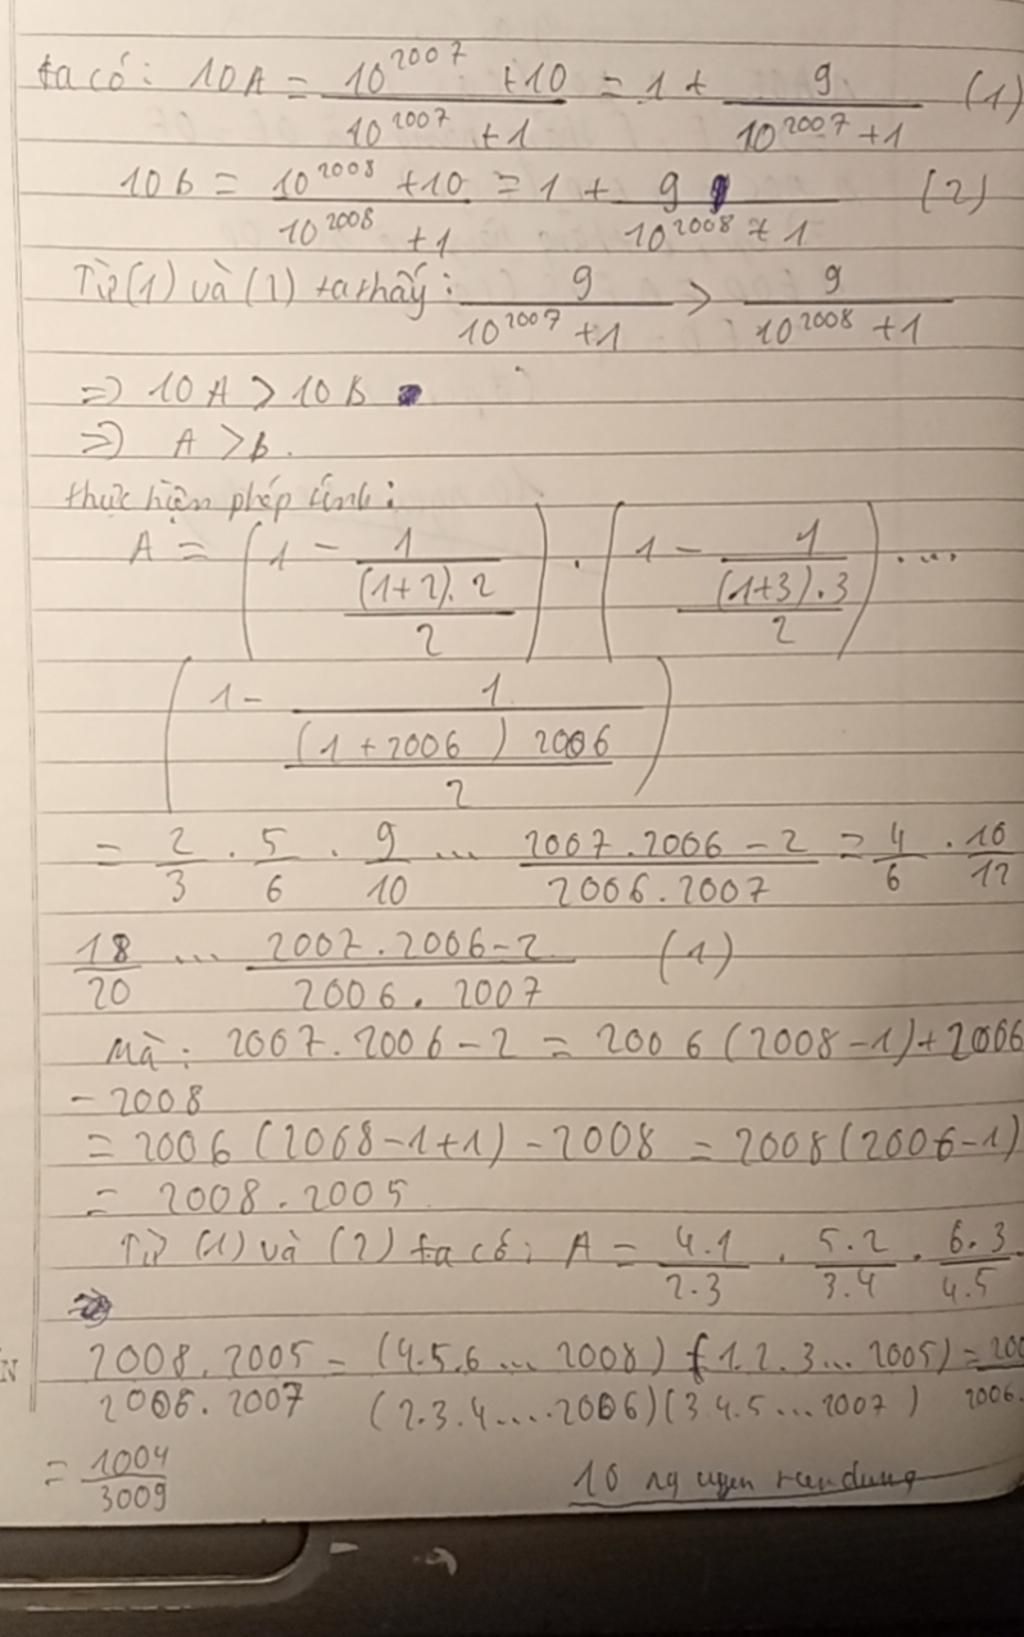 ta có: 10A = \frac{10^{2007} + 10}{10^{2007} + 1} = 1 + \frac{9}{10^{2007} + 1} (1)
10B = \frac{10^{2008} + 10}{10^{2008} + 1} = 1 + \frac{9}{10^{2008} + 1} (2)
Từ (1) và (2) ta thấy: \frac{9}{10^{2007} + 1} > \frac{9}{10^{2008} + 1}
=> 10A > 10B
=> A > B.
thực hiện phép tính:
A = \left(1 - \frac{1}{\frac{(1+2).2}{2}}\right) . \left(1 - \frac{1}{\frac{(1+3).3}{2}}\right) ....
\left(1 - \frac{1}{\frac{(1+2006) 2006}{2}}\right)
= \frac{2}{3} . \frac{5}{6} . \frac{9}{10} ... \frac{2007.2006 - 2}{2006.2007} = \frac{4}{6} . \frac{10}{12}
\frac{18}{20} ... \frac{2007.2006 - 2}{2006.2007} (1)
Mà: 2007.2006 - 2 = 2006(2008 - 1) + 2006
- 2008
= 2006(2008 - 1 + 1) - 2008 = 2008(2006 - 1)
= 2008.2005
Từ (1) và (2) ta có: A = \frac{4.1}{2.3} . \frac{5.2}{3.4} . \frac{6.3}{4.5}
\frac{2008.2005}{2006.2007} = \frac{(4.5.6...2008)(1.2.3...2005)}{(2.3.4....2006)(3.4.5...2007)} =
= \frac{1004}{3009}